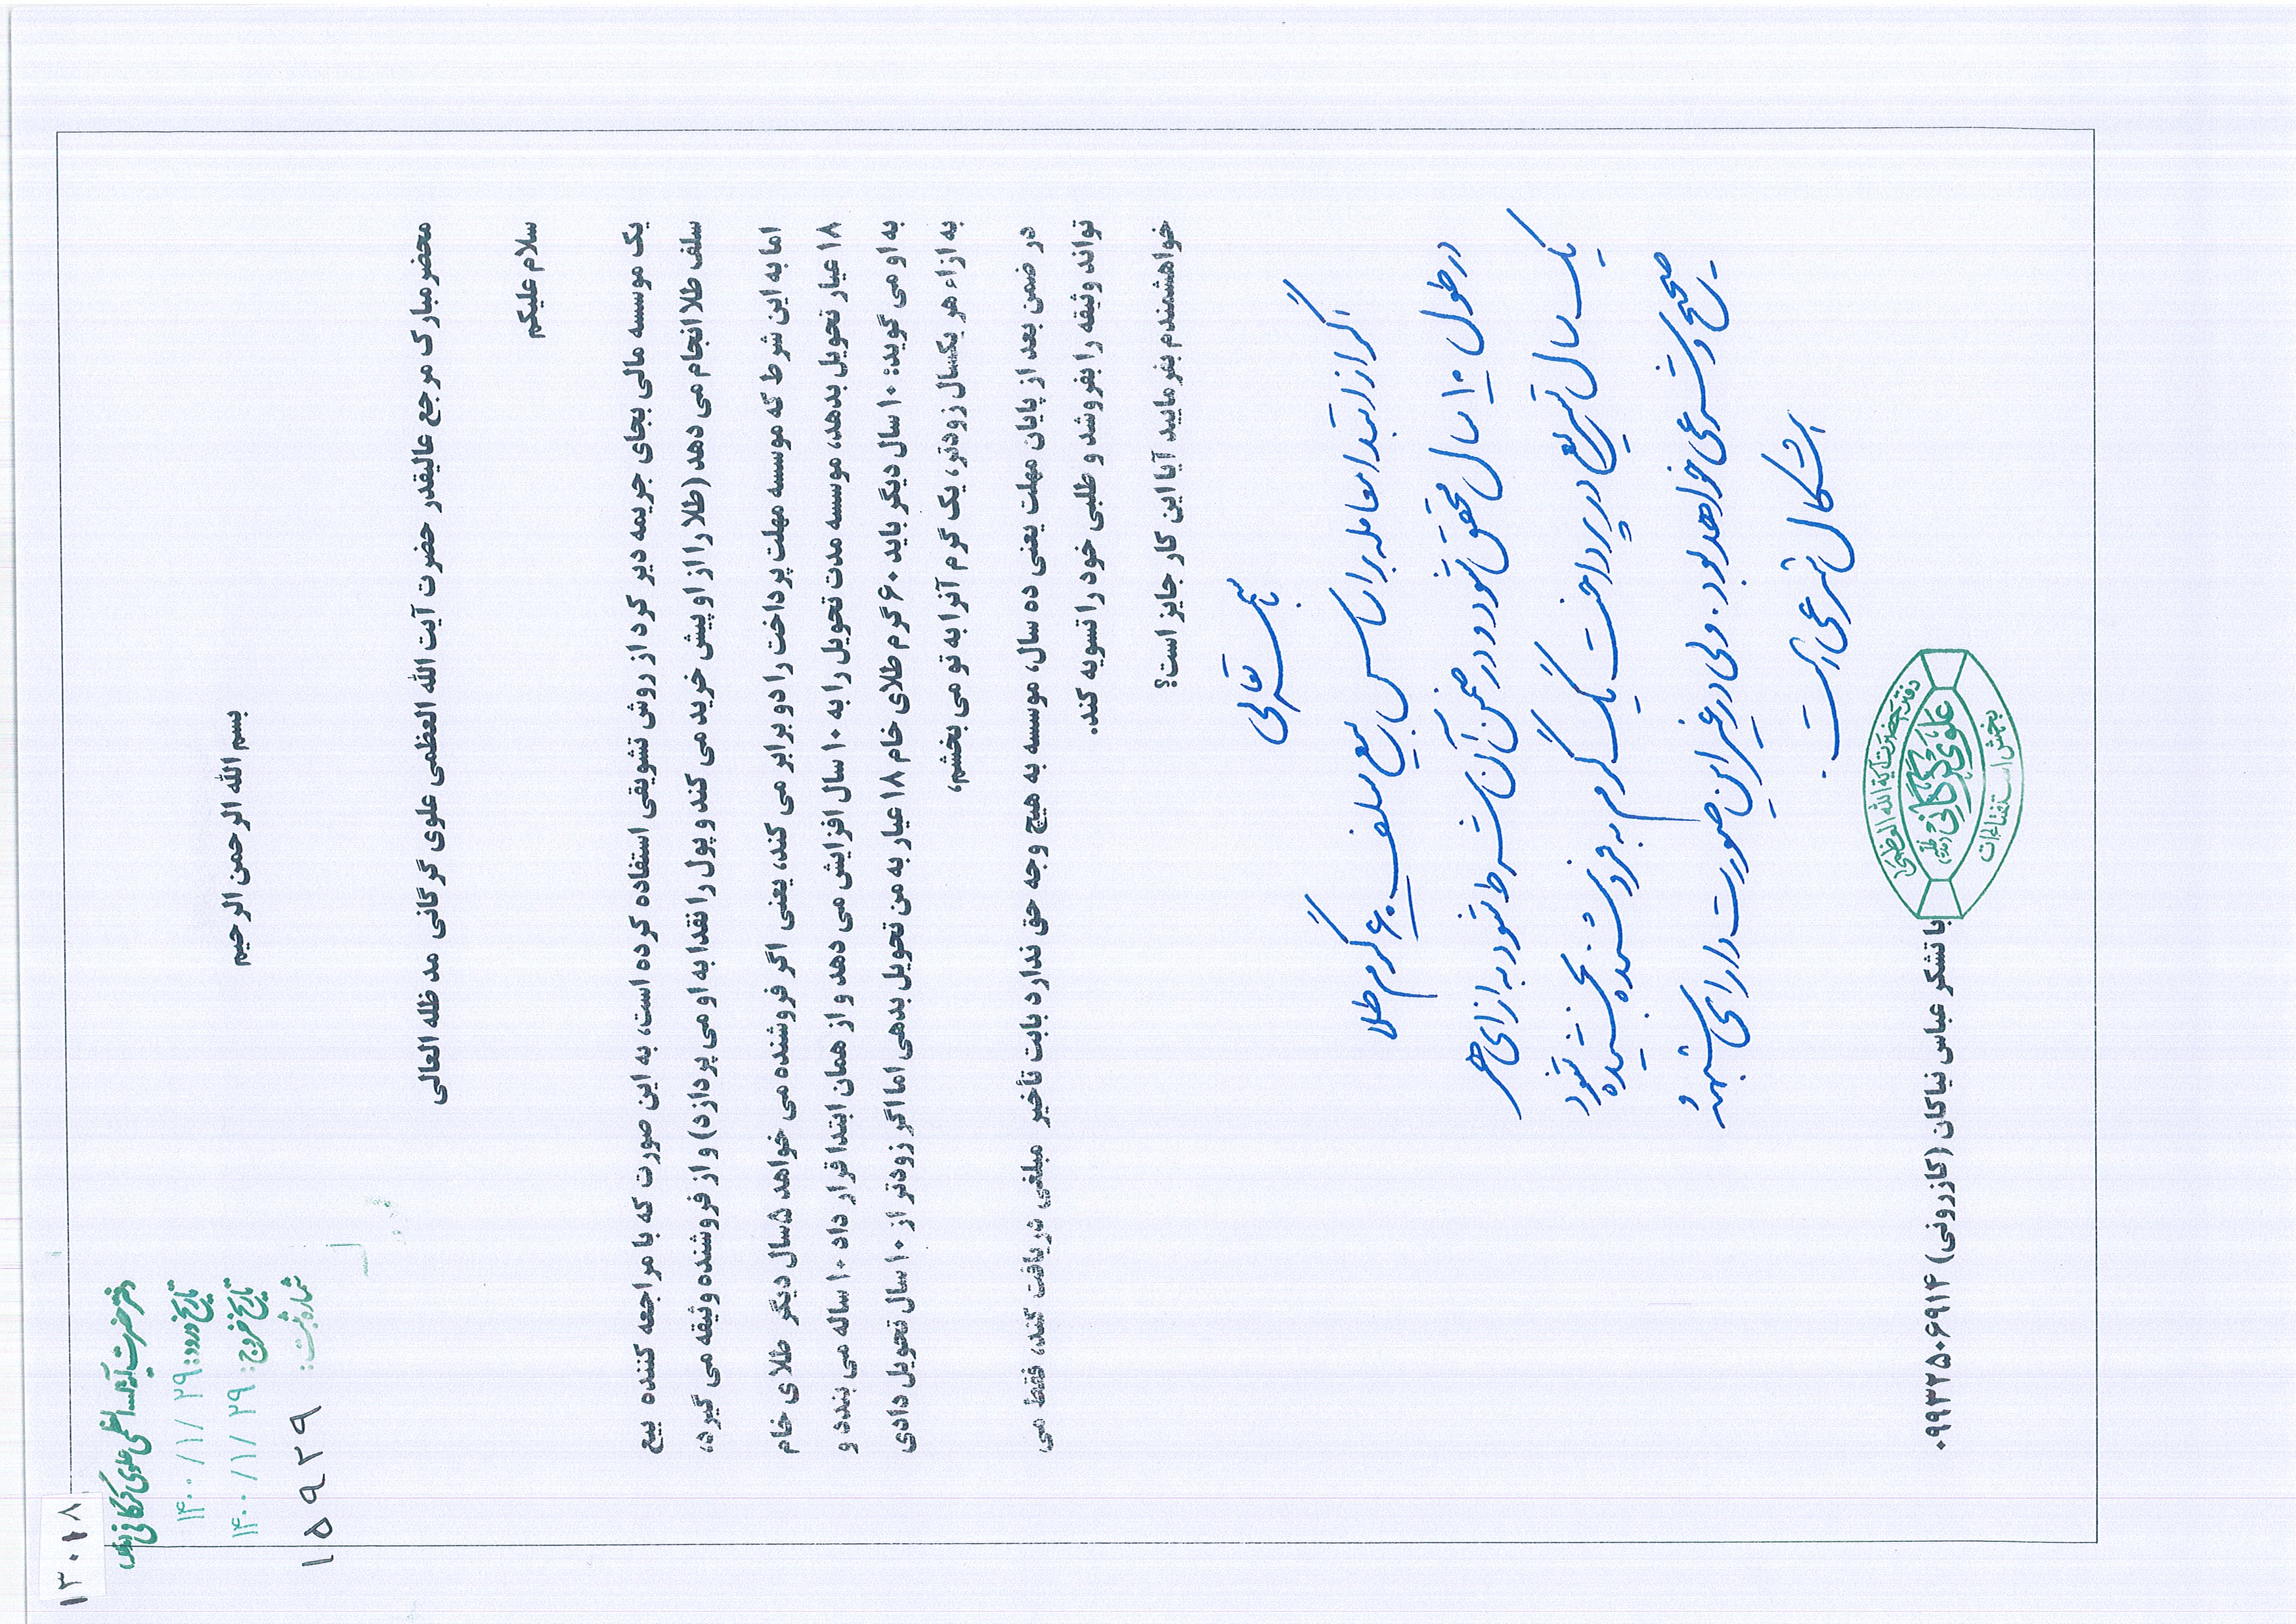 ۱۳۰۱۸
دفتر حضرت آیة الله العظمی علوی گرگانی
تاریخ ورود: ۱۴۰۰/۱/۲۹
تاریخ خروج: ۱۴۰۰/۱/۲۹
شماره ثبت:
۱۵۹۲۹
بسم الله الرحمن الرحیم
محضر مبارک مرجع عالیقدر حضرت آیت الله العظمی علوی گرگانی مد ظله العالی
سلام علیکم
یک موسسه مالی بجای جریمه دیر کرد از روش تشویقی استفاده کرده است، به این صورت که با مراجعه کننده بیع
سلف طلا انجام می دهد (طلا را از او پیش خرید می کند و پول را نقدا به او می پردازد) و از فروشنده وثیقه می گیرد،
اما به این شرط که موسسه مهلت پرداخت را دو برابر می کند، یعنی اگر فروشنده می خواهد ۵ سال دیگر طلای خام
۱۸ عیار تحویل بدهد، موسسه مدت تحویل را به ۱۰ سال افزایش می دهد و از همان ابتدا قرار داد ۱۰ ساله می بندد و
به او می گوید: ۱۰ سال دیگر باید ۶۰ گرم طلای خام ۱۸ عیار به من تحویل بدهی اما اگر زودتر از ۱۰ سال تحویل دادی
به ازاء هر یکسال زودتر، یک گرم آنرا به تو می بخشم،
در ضمن بعد از پایان مهلت یعنی ده سال، موسسه به هیچ وجه حق ندارد بابت تأخیر مبلغی دریافت کند، فقط می
تواند وثیقه را بفروشد و طلبی خود را تسویه کند.
خواهشمندم بفرمایید آیا این کار جایز است؟
بسمه تعالی
اگر از ابتدا معامله بر اساس بیع سلف ۶۰ گرم طلا
در طول ۱۰ سال محقق شود و در ضمن آن شرط شود به ازای هر
یک سال تسریع در پرداخت یک گرم به فروشنده بخشیده شود
صحیح و شرعی خواهد بود. ولی در غیر این صورت دارای شبهه و
اشکال شرعی است.
دفتر حضرت آیة الله العظمی
علوی گرگانی
بخش استفتاءات
با تشکر عباس نیاکان (کازرونی) ۰۹۹۳۲۵۰۶۹۱۴